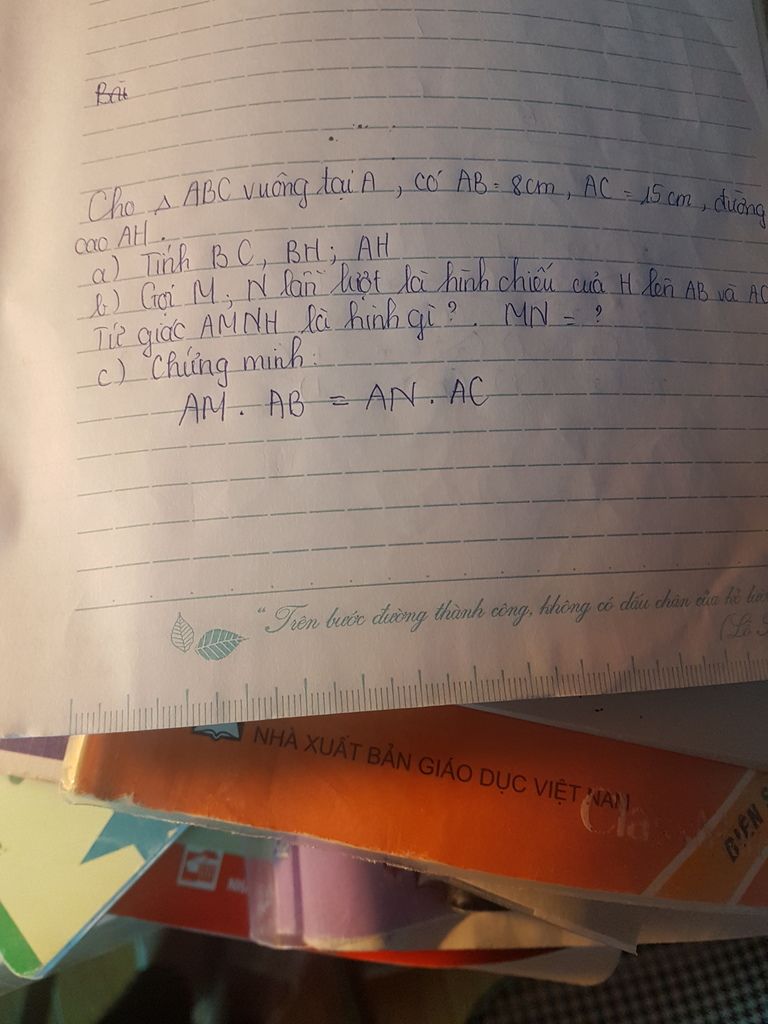 Bài
Cho △ ABC vuông tại A, có AB = 8cm, AC = 15cm, đường
cao AH.
a) Tính BC, BH; AH
b) Gọi M; N lần lượt là hình chiếu của H lên AB và AC
Tứ giác AMNH là hình gì? MN = ?
c) Chứng minh:
AM . AB = AN . AC
"Trên bước đường thành công, không có dấu chân của kẻ lười
(Lỗ
NHÀ XUẤT BẢN GIÁO DỤC VIỆT NAM
BIÊN
NH